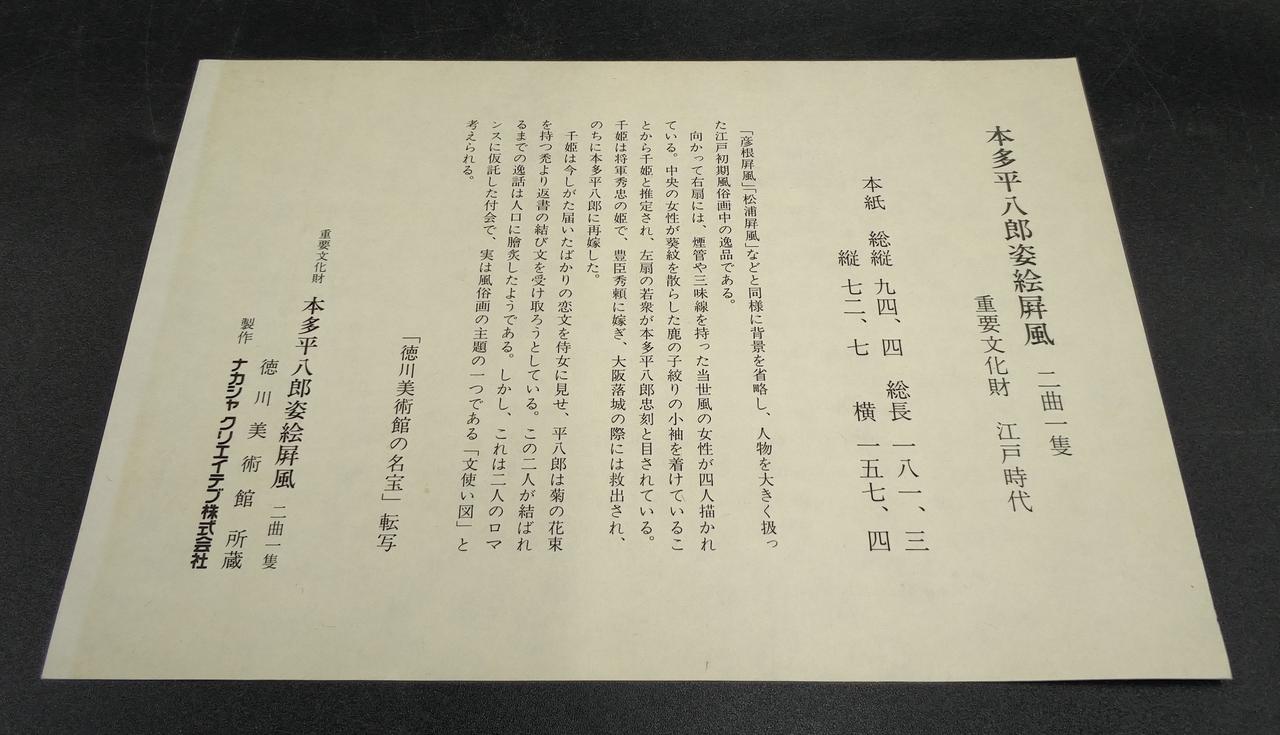 本多平八郎姿絵屛風 二曲一隻
重要文化財 江戸時代
総縦 九四、四 総長 一八一、三
本紙 縦 七二、七 横 一五七、四
「彦根屛風」「松浦屛風」などと同様に背景を省略し、人物を大きく扱っ
た江戸初期風俗画中の逸品である。
向かって右扇には、煙管や三味線を持った当世風の女性が四人描かれ
ている。中央の女性が葵紋を散らした鹿の子絞りの小袖を着けているこ
とから千姫と推定され、左扇の若衆が本多平八郎忠刻と目されている。
千姫は将軍秀忠の姫で、豊臣秀頼に嫁ぎ、大阪落城の際には救出され、
のちに本多平八郎に再嫁した。
千姫は今しがた届いたばかりの恋文を侍女に見せ、平八郎は菊の花束
を持つ禿より返書の結び文を受け取ろうとしている。この二人が結ばれ
るまでの逸話は人口に膾炙したようである。しかし、これは二人のロマ
ンスに仮託した付会で、実は風俗画の主題の一つである「文使い図」と
考えられる。
「徳川美術館の名宝」転写
重要文化財 本多平八郎姿絵屛風 二曲一隻
徳川美術館 所蔵
製作 ナカシャ クリエイテブ株式会社